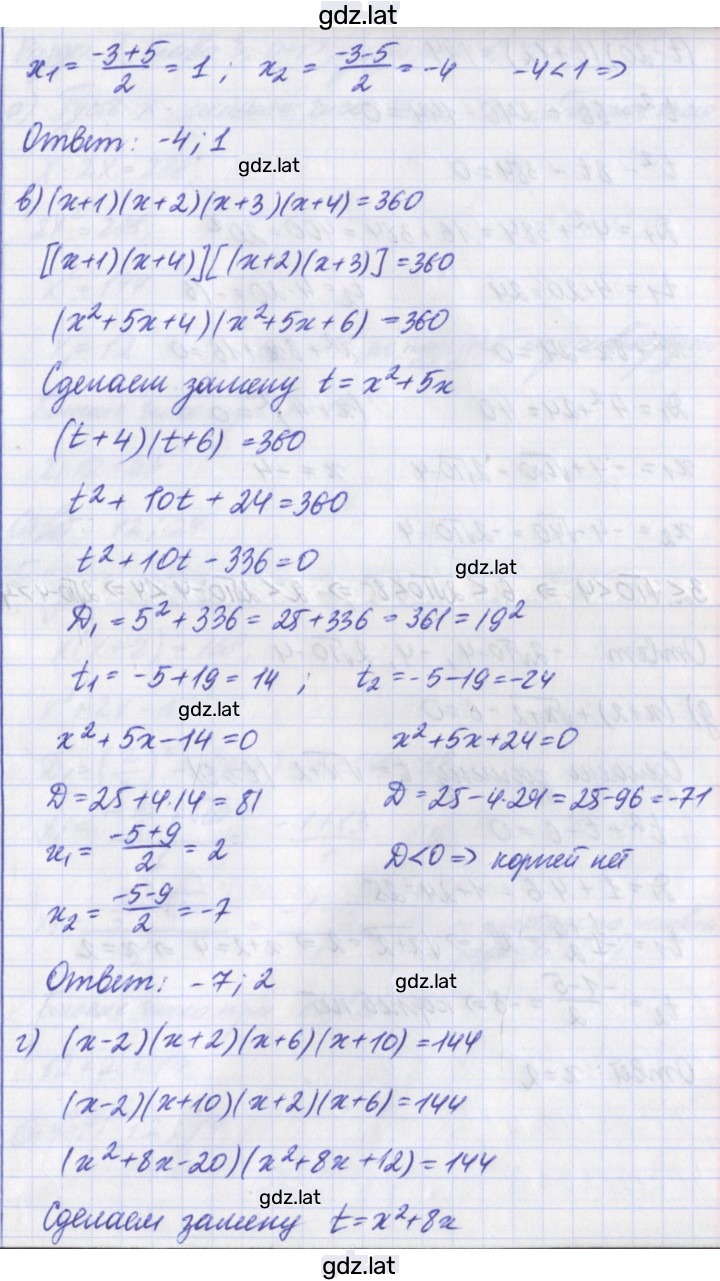 gdz.lat
x₁ = (-3+5)/2 = 1 ; x₂ = (-3-5)/2 = -4 -4<1 =>
Ответ: -4; 1
gdz.lat
в) (x+1)(x+2)(x+3)(x+4)=360
[(x+1)(x+4)][(x+2)(x+3)]=360
(x²+5x+4)(x²+5x+6)=360
Сделаем замену t=x²+5x
(t+4)(t+6)=360
t²+10t+24=360
t²+10t-336=0
gdz.lat
D₁=5²+336=25+336=361=19²
t₁=-5+19=14 ; t₂=-5-19=-24
gdz.lat
x²+5x-14=0 x²+5x+24=0
D=25+4·14=81 D=25-4·24=25-96=-71
x₁ = (-5+9)/2 = 2 D<0 => корней нет
x₂ = (-5-9)/2 = -7
Ответ: -7; 2
gdz.lat
г) (x-2)(x+2)(x+6)(x+10)=144
(x-2)(x+10)(x+2)(x+6)=144
(x²+8x-20)(x²+8x+12)=144
gdz.lat
Сделаем замену t=x²+8x
gdz.lat